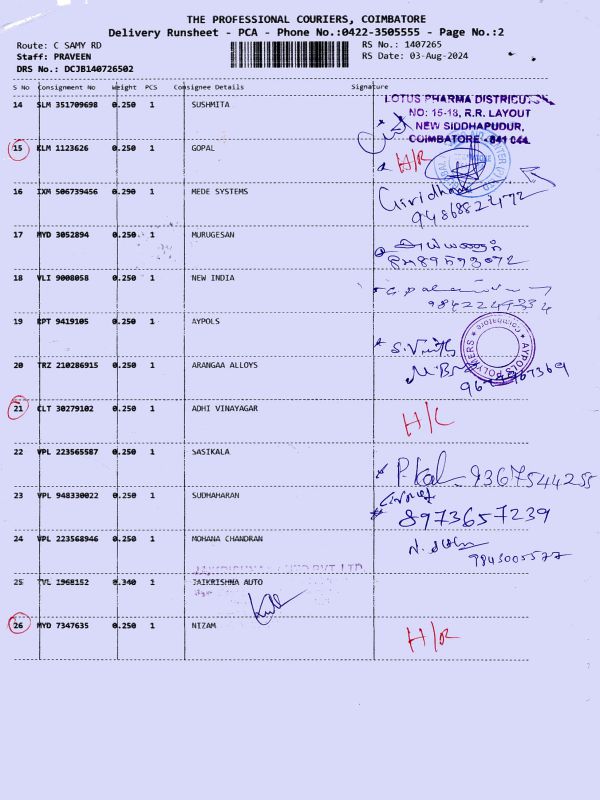 THE PROFESSIONAL COURIERS, COIMBATORE
Delivery Runsheet - PCA - Phone No.:0422-3505555 - Page No.:2
Route: C SAMY RD RS No.: 1407265
Staff: PRAVEEN RS Date: 03-Aug-2024
DRS No.: DCJB140726502
S No Consignment No Weight PCS Consignee Details Signature
14 SLM 351709698 0.250 1 SUSHMITA
LOTUS PHARMA DISTRIBUT
NO: 15-18, R.R. LAYOUT
NEW SIDDHAPUDUR,
COIMBATORE - 641 044.
15 ELM 1123626 0.250 1 GOPAL H/R
16 IXM 506739456 0.290 1 MEDE SYSTEMS Giridhar
9486882472
17 MYD 3052894 0.250 1 MURUGESAN
8489593072
18 VLI 9008058 0.250 1 NEW INDIA
9842249334
19 EPT 9419105 0.250 1 AYPOLS
AYPOLS POLYMERS
COIMBATORE
20 TRZ 210286915 0.250 1 ARANGAA ALLOYS
21 CLT 30279102 0.250 1 ADHI VINAYAGAR H/C
22 VPL 223565587 0.250 1 SASIKALA P.Kal 9367544255
23 VPL 948330022 0.250 1 SUDHAHARAN
8973657239
24 VPL 223568946 0.250 1 MOHANA CHANDRAN
9843005577
JAIKRISHNA AUTO PVT LTD
25 TVL 1968152 0.340 1 JAIKRISHNA AUTO
26 MYD 7347635 0.250 1 NIZAM H/R